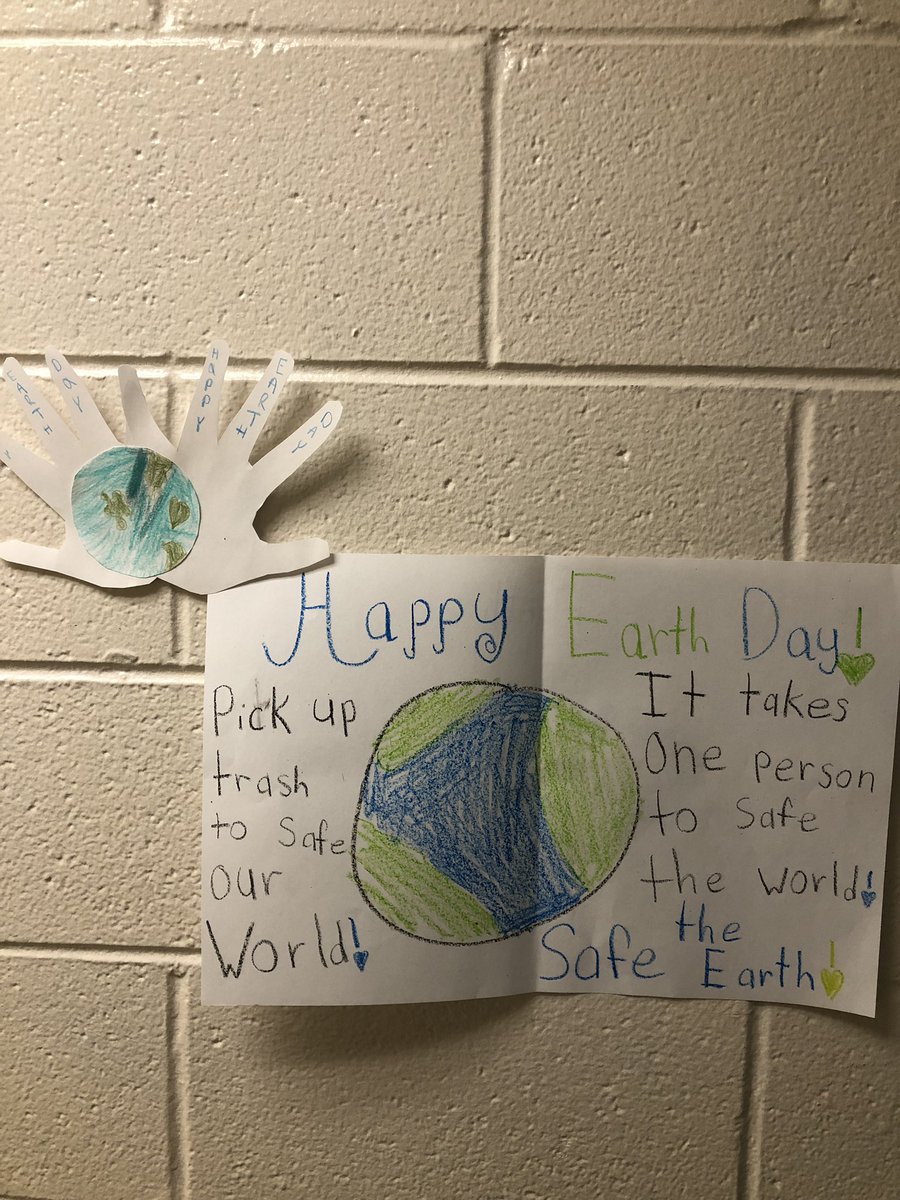 HAPPY
EARTH
DAY
Happy Earth Day!
Pick up
trash
to Safe
our
World!
It takes
One person
to Safe
the world!
Safe the
Earth!